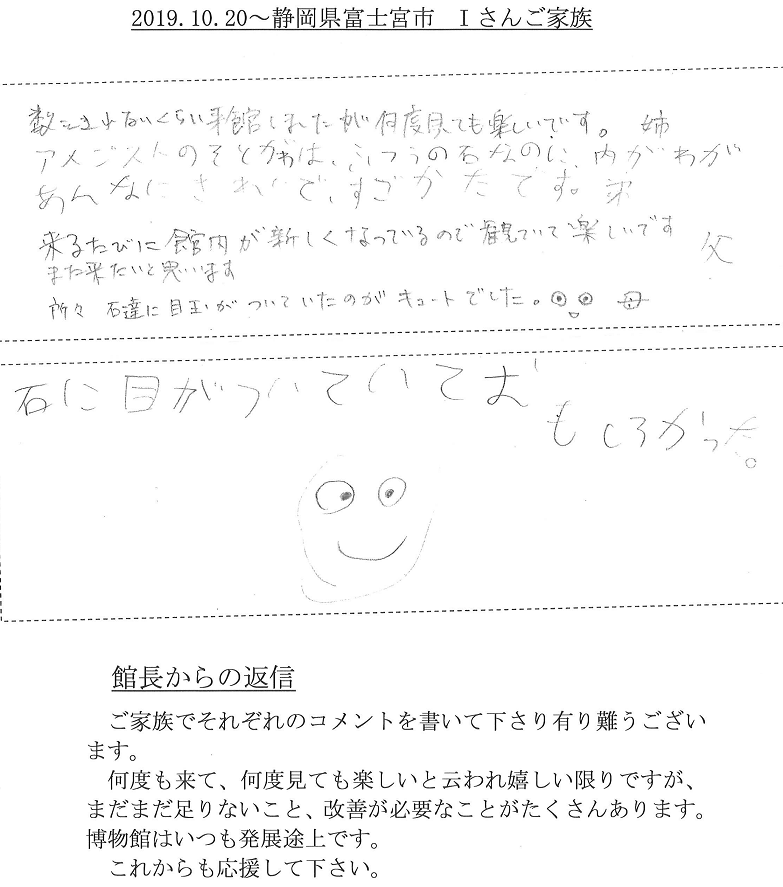 2019.10.20～静岡県富士宮市　Ｉさんご家族
数えきれないくらい来館しましたが何度見ても楽しいです。 姉
アメジストのそとがわは、ふつうの石なのに、内がわが
あんなにきれいで、すごかったです。弟
来るたびに館内が新しくなっているので観ていて楽しいです
また来たいと思います 父
所々 石達に目玉がついていたのがキュートでした。 母
石に目がついていてお
もしろかった。
館長からの返信
ご家族でそれぞれのコメントを書いて下さり有り難うござい
ます。
何度も来て、何度見ても楽しいと云われ嬉しい限りですが、
まだまだ足りないこと、改善が必要なことがたくさんあります。
博物館はいつも発展途上です。
これからも応援して下さい。